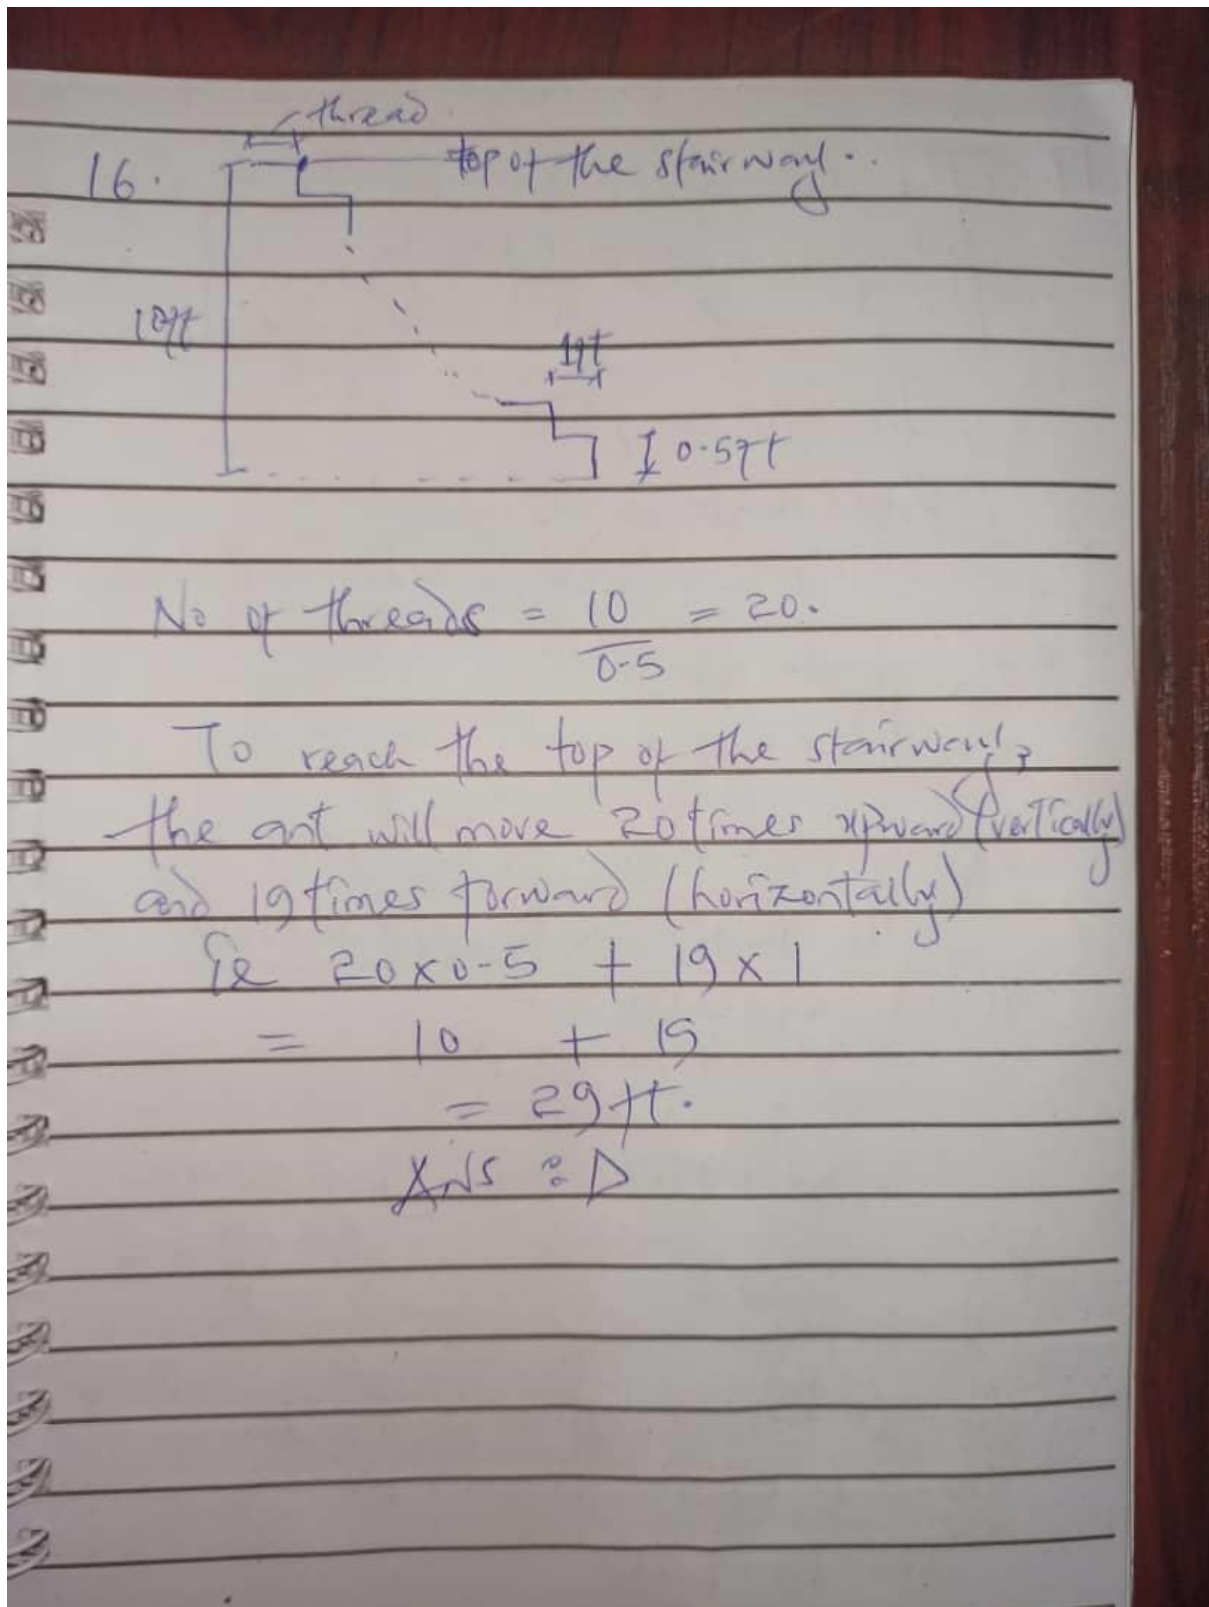 thread
16. top of the stairway..
10ft
1ft
0.5ft
No of threads = 10/0.5 = 20.
To reach the top of the stairway,
the ant will move 20 times upward (vertically)
and 19 times forward (horizontally)
ie 20 x 0.5 + 19 x 1
= 10 + 19
= 29ft.
Ans : D